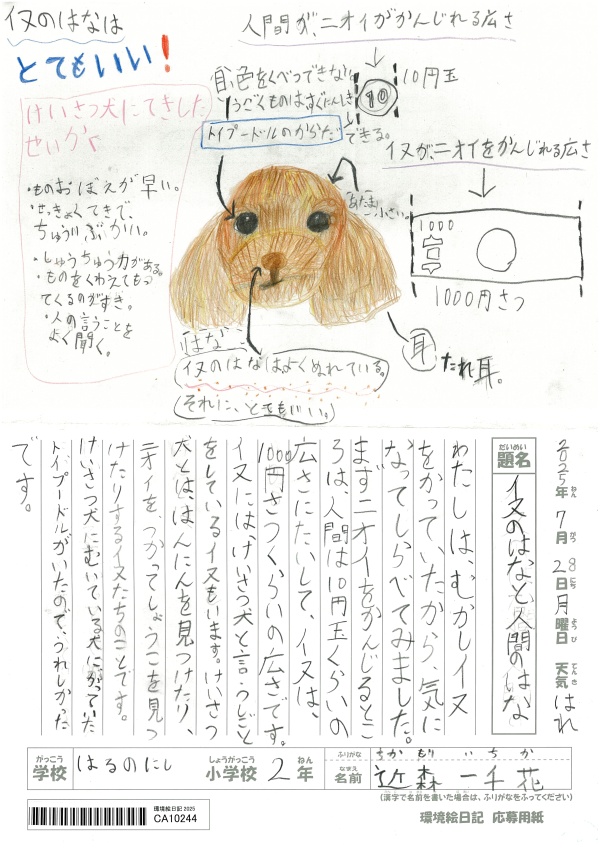 イヌのはなは
とてもいい!
けいさつ犬にてきした
せいかく
・ものおぼえが早い。
・せっきょくてきで、
ちゅういぶかい。
・しゅうちゅう力がある。
・ものをくわえてもっ
てくるのがすき。
・人の言うことを
よく聞く。
人間が、ニオイがかんじれる広さ
10
10円玉
トイプードルのからだ
できる。
あたま
小さい。
イヌが、ニオイをかんじれる広さ
1000
1000円さつ
はな
イヌのはなはよくぬれている。
それに、とてもいい。
耳
たれ耳。
2025年7月28日月曜日 天気 はれ
ねん がつ にち ようび てんき
だいめい
題名
イヌのはなと、人間のはな
わたしは、むかしイヌ
をかっていたから、気に
なってしらべてみました。
まずニオイをかんじるとこ
ろは、人間は10円玉くらいの
広さにたいして、イヌは、
1000円さつくらいの広さです。
イヌには、けいさつ犬と言うしごと
をしているイヌもいます。けいさつ
犬とは、はんにんを見つけたり、
ニオイを、つかってしょうこを見つ
けたりするイヌたちのことです。
けいさつ犬にむいている犬に、かっていた
トイプードルがいたので、うれしかった
です。
がっこう
学校
はるのにし
しょうがっこう
小学校
2
ねん
年
ふりがな
ちか もり い ち か
なまえ
名前
近森 一千花
(漢字で名前を書いた場合は、ふりがなをふってください)
環境絵日記 2025
CA10244
環境絵日記 応募用紙